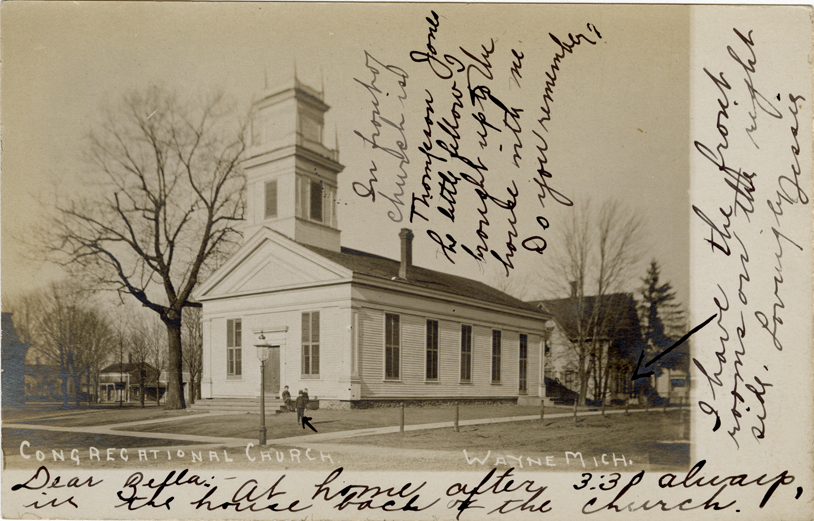 In front of
church is
Thompson Jones
he little fellow I
brought up to the
house with me.
Do you remember?
I have the front
rooms on the right
side. Lovingly Jessie
CONGREGATIONAL CHURCH.
WAYNE MICH.
Dear Bella:- At home after 3:30 always,
in the house back of the church.